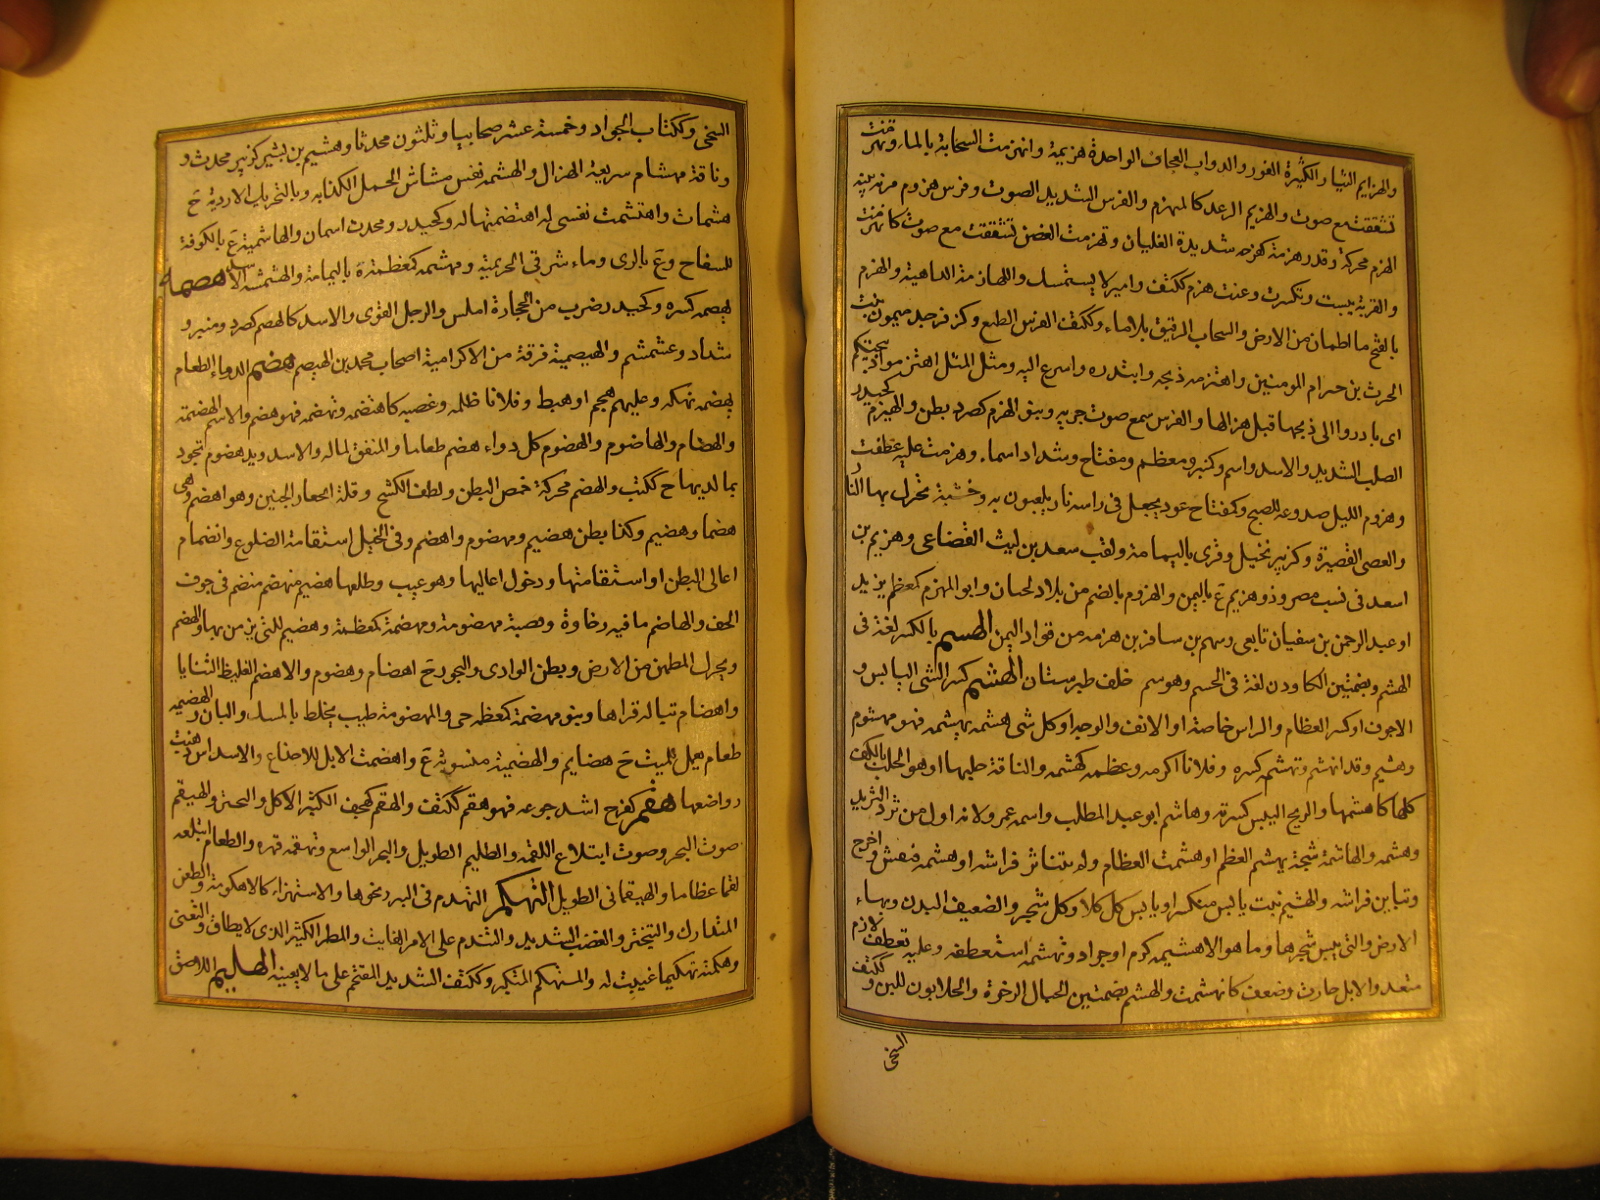 والهزايم البئار الكثيرة الغور والدواب العجاف الواحدة هزيمة وانهزمت السحابة بالماء وتهزمت
تشققت مع صوت والهزيم الرعد كالمتهزم والفرس الشديد الصوت وفرس هزوم
الهزم محركة وقدر هزمة كفرحة شديدة الغليان وتهزمت العصن تشققت مع صوت كانهزمت
والقربة يبست وتكسرت وغيث هزم ككتف وامير لا يستمسك والهازمة الداهية والهزم
بالفتح ما اطمان من الارض والسحاب الرقيق بلا ماء وككتف الفرس الطيع وكزفر جد ميمونة بنت
الحرث بن حزام المومنين واهتزمه ذبحه وابتدره واسرع اليه ومثل المثل اهتزموا ذبيحتكم
اى بادروا الى ذبحها قبل هزالها والفرس سمع صوت جريه وبنو الهزم كصرد بطن والهيزم كحيدر
الصلب الشديد والاسد واسم وكمنبر ومعظم ومفتاح وشداد اسماء وهزمت عليه عطفت
وهزوم الليل صدوعه للصبح وكمفتاح عود يجعل فى راسه نار يلعبون به وخشبة تحرك بها النار
والعصى القصيرة وكزبير نخيل وقرى باليمامة ولقب سعد بن ليث القضاعى وهزيم بن
اسعد فى نسب مصر وذو هزيم ع باليمن والهزوم بالضم من بلاد لحيان وابو المهزم كمعظم يزيد
او عبد الرحمن بن سفيان تابعى وسهم بن سافر بن هزمة من قواد اليمن الهسم بالكسر لغة فى
الهشم وبضمتين الكاوون لغة فى الحسم وهوسم خلف طبرستان الهشم كسر الشى اليابس و
الاجوف او كسر العظام والراس خاصة او الانف والوجه او كل شى هشمه يهشمه فهو مهشوم
وهشيم وقد انهشم وتهشم كسره وفلانا اكرمه وعظمه كهشمه والناقة حلبها او هو الحلب بالكف
كلها كاهتشمها والريح اليبس كسرته وهاشم ابو عبد المطلب واسمه عمرو لانه اول من ثرد الثريد
وهشمه والهاشمة شجة تهشم العظم او هشمت العظام ولم يتباين فراشه او هشمه فنقش واخرج
وتباين فراشه والهشيم نبت يابس متكسر او يابس كل كلا وكل شجر والضعيف البدن وبهاء
الارض والتى يبس شجرها وما هو الا هشيم كرم اى جواد وتهشمه استعطفه وعليه تعطف لازم
متعد والابل خارت وضعفت كانهشمت والهشم بضمتين الجبال الرخوة والحلابون للبن وككتف
السخى
السخى وككتاب الجواد وخمسة عشر صحابيا وثلثون محدثا وهشيم بن بشير كزبير محدث و
وناقة مهشام سريعة الهزال والهشمه نفس مشاش الجبل الكذانه وبالتحريك الاروية ج
هشمات واهتشمت نفسى له اهتضمتها له وكحيدر ومحدث اسمان والهاشمية ع بالكوفة
للسفاح وع بالرى وماء شرقى الخريمية ومهشمه كمعظمة ة باليمامة والهشمشة الاسد هصمه
يهصمه كسره وكحيدر ضرب من الحجارة املس والرجل القوى والاسد كالهصم كصرد ومنبر و
شداد وعشمشم والهيصمية فرقة من الاكرامية اصحاب محمد بن الهيصم هضم الدواء الطعام
يهضمه نهكه وعليهم هجم او هبط وفلانا ظلمه وغصبه كاهتضمه وتهضمه فهو هضيم والاسم الهضيمة
والهضام والهاضوم والهضوم كل دواء هضم طعاما والمنفق لماله والاسد ويد هضوم تجود
بما لديها ج ككتب والهضم محركة خمص البطن ولطف الكشح وقلة انجفار الجنبين وهو اهضم وهى
هضما وهضيم وكذا بطن هضيم ومهضوم واهضم وفى الخيل استقامة الضلوع وانضمام
اعالى البطن او استقامتها ودخول اعاليها وهو عيب وطلعها هضيم منهضم منضم فى جوف
الجف والهاضم ما فيه رخاوة وقصبة مهضومة ومهضمة كمعظمة وهضيم للتى يزمر بها والهضم
ويحرك المطمن من الارض وبطن الوادى والبخور ج اهضام وهضوم والاهضم الغليظ الثنايا
واهضام تبالة قراها وبنو مهضمة كمعظمة حى والمهضومة طيب يخلط بالمسك والبان والهضيمة
طعام يعمل للميت ج هضايم والهضيمية منسوبة ع واهضمت الابل للاجذاع والاسداس ذهبت
رواضعها هقم كفرح اشتد جوعه فهو هقم ككتف والهقم كهجف الكثير الاكل والبحر والهيقم
صوت البحر وصوت ابتلاع اللقمة والظليم الطويل والبحر الواسع وتهقمه قهره والطعام ابتلعه
لقما عظاما والهيقمانى الطويل التهكم التهدم فى البير ونحوها والاستهزاء كالاهكومة والطعن
المتدارك والتبختر والغضب الشديد والتندم على الامر الفايت والمطر الكثير الذى لا يطاق والتغنى
وهكمته تهكيما غنيت له والمستهكم المتكبر وككتف الشديد المقتحم على ما لا يعنيه الهليم اللاصق